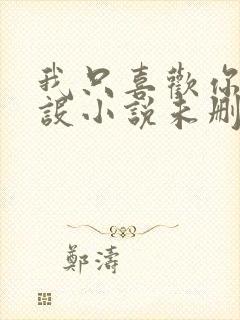 我只喜歡你
設小說未刪
鄭濤